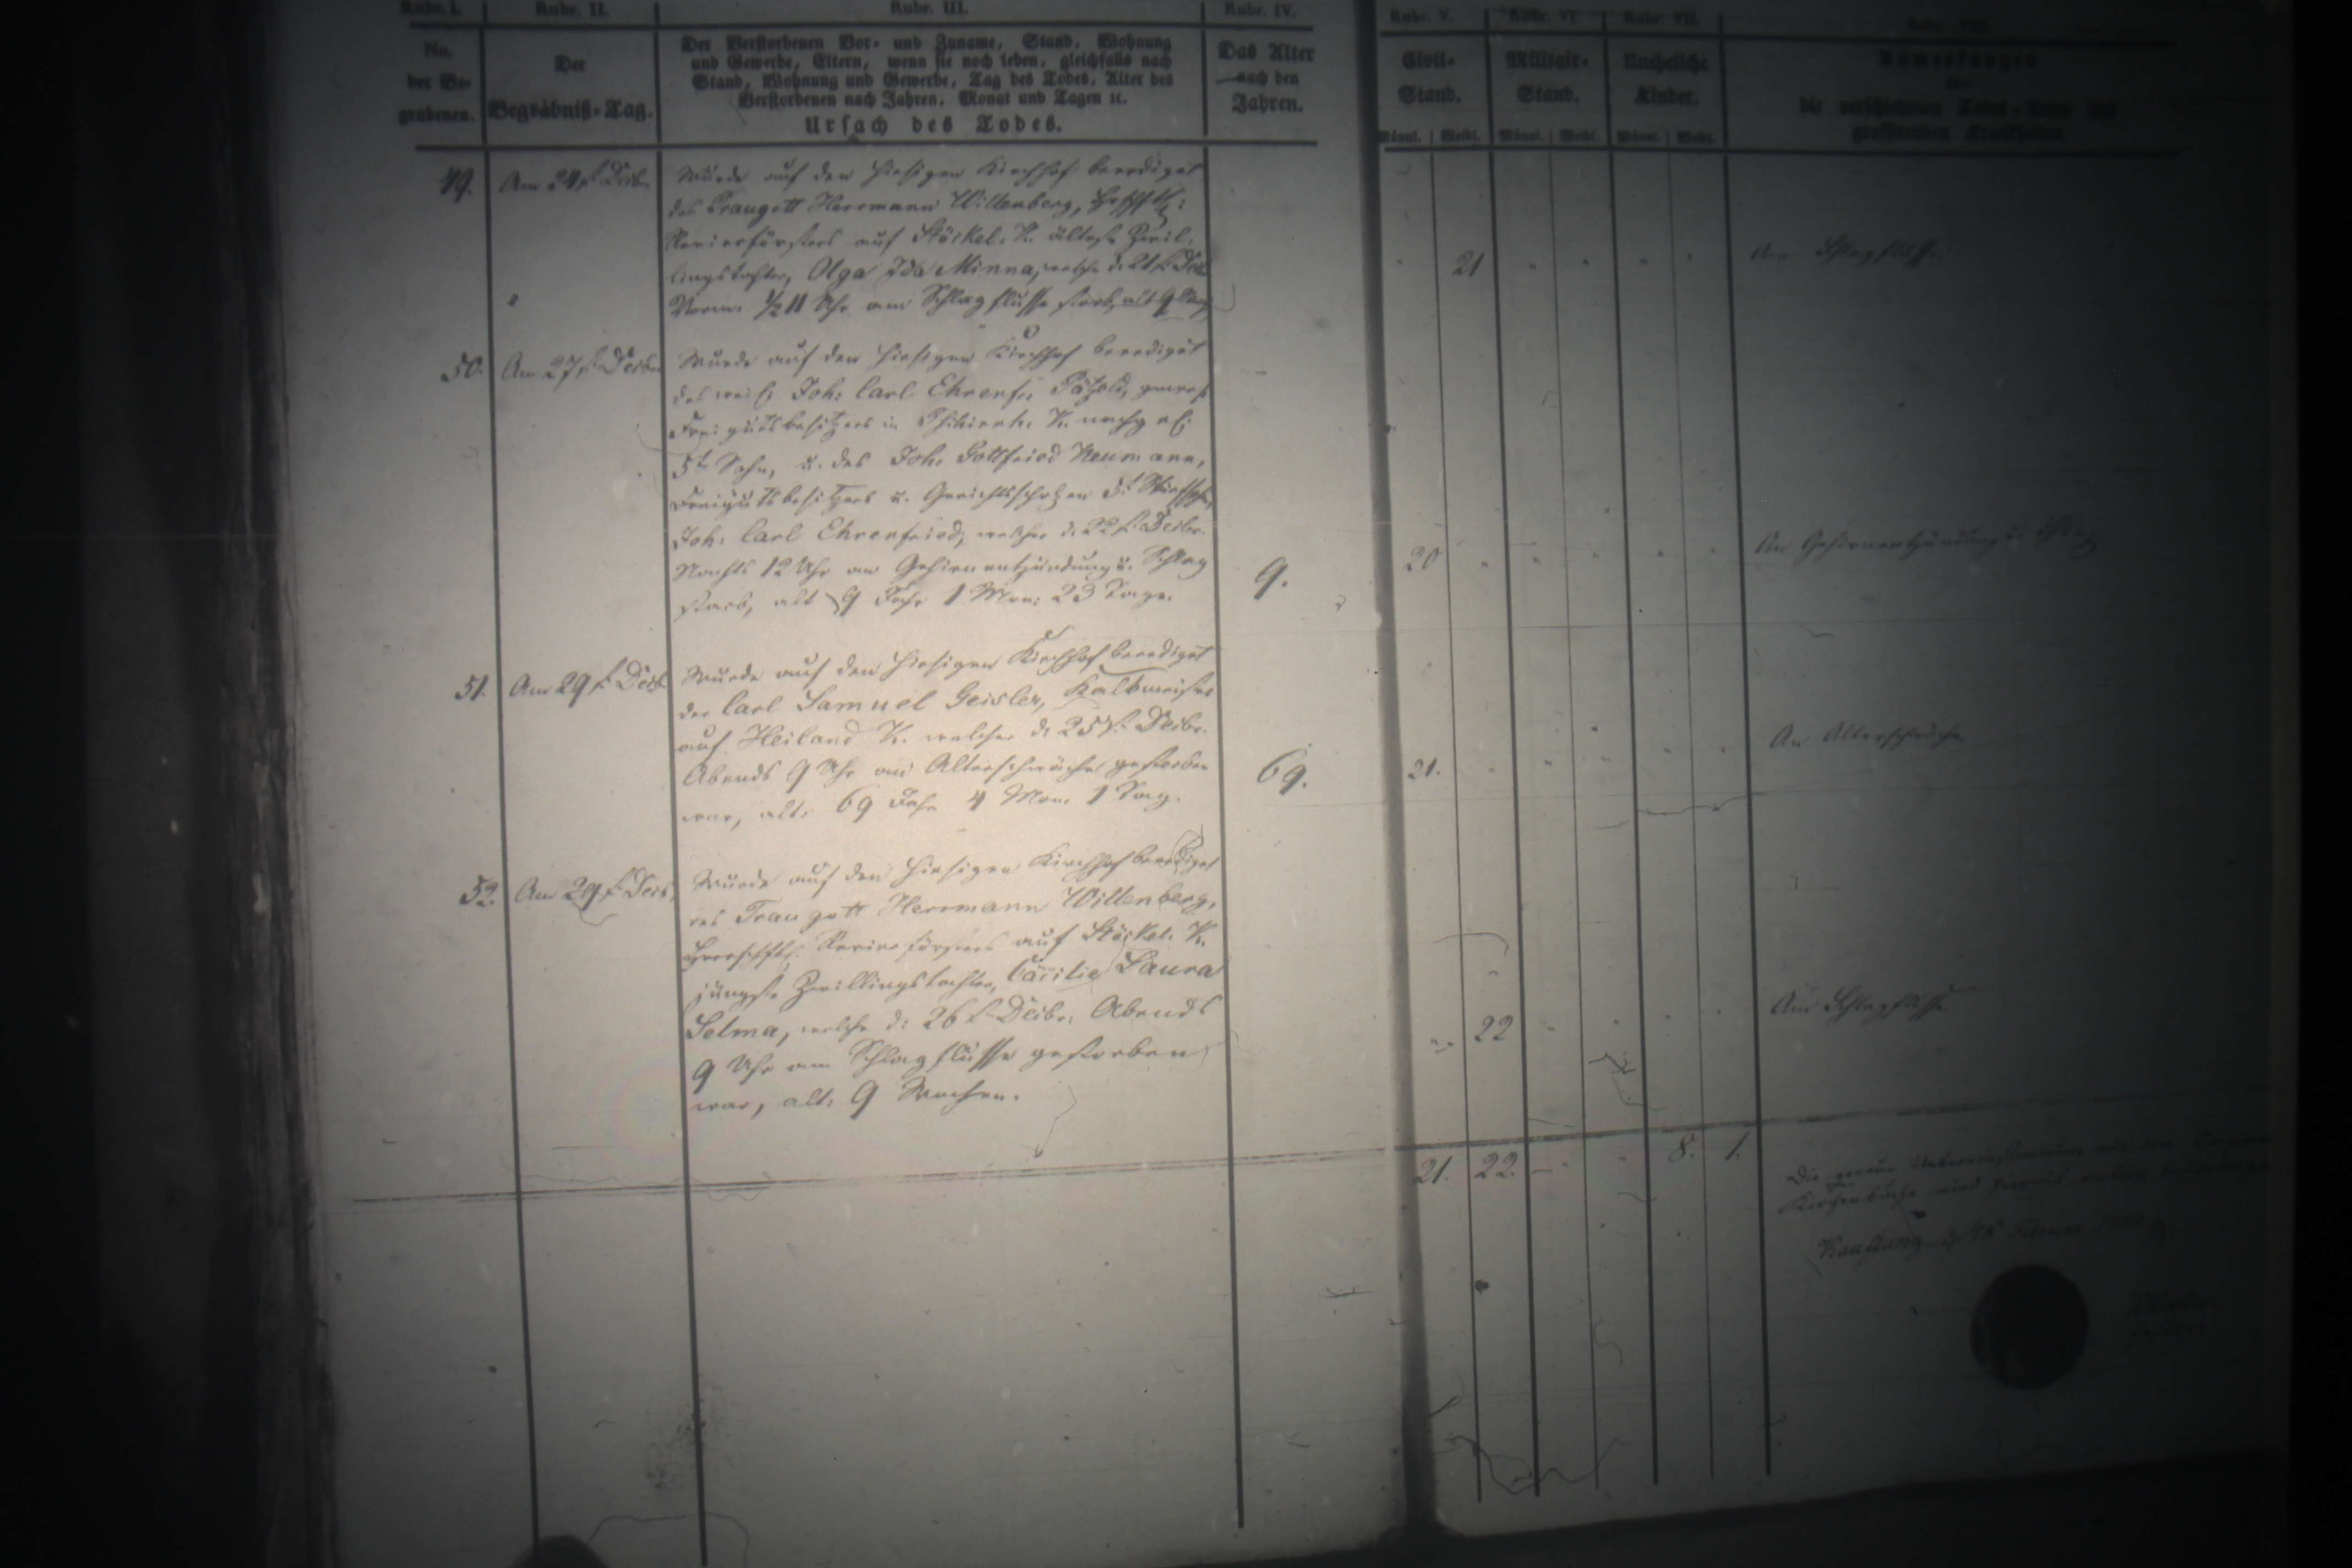 Rubr. I. Rubr. II. Rubr. III. Rubr. IV. Rubr. V. Rubr. VI. Rubr. VII.
No. der Begrabenen.
Der Begräbniß-Tag.
Der Verstorbenen Vor- und Zuname, Stand, Wohnung
und Gewerbe, Eltern, wenn sie noch leben, gleichfalls nach
Stand, Wohnung und Gewerbe, Tag des Todes, Alter des
Verstorbenen nach Jahren, Monat und Tagen ꝛc.
Ursach des Todes.
Das Alter
nach den
Jahren.
Civil-
Stand.
Männl. | Weibl.
Militair-
Stand.
Männl. | Weibl.
Uneheliche
Kinder.
Männl. | Weibl.
Anmerkungen
über
die verschiedenen Todes-Arten und
grassirenden Krankheiten.
49. Am 24t Decbr. Wurde auf den hiesigen Kirchhof beerdiget
des Traugott Herrmann Willenberg,
Revierförsters auf Stöckel. K. älteste Zwil-
lingstochter, Olga Ida Minna, welche d. 21t Dec
Vorm. ½ 11 Uhr am Schlagflusse starb, alt 9
21
Am Schlagflusse
50. Am 27t Decbr. Wurde auf den hiesigen Kirchhof beerdiget
des weil. Joh: Carl Ehrenfr. Pätzold, gewes.
Freigutsbesitzers in K. nachgel.
5t Sohn, u. des Joh. Gottfried Neumann,
Freigutsbesitzers u. Gerichtsscholzen
Joh: Carl Ehrenfried, welcher d. 22t Decbr.
Nachts 12 Uhr an Gehirnentzündung u. Schlag
starb, alt 9 Jahr 1 Mon: 23 Tage.
9. 20
An Gehirnentzündung u. Schlag
51. Am 29t Decb Wurde auf den hiesigen Kirchhof beerdiget
der Carl Samuel Geisler,
auf Heiland K. welcher d. 25t Decbr.
Abends 9 Uhr an Altersschwäche gestorben
war, alt: 69 Jahr 4 Mon. 1 Tag.
69. 21.
An Altersschwäche
52. Am 29t Decb. Wurde auf den hiesigen Kirchhof beerdiget
des Traugott Herrmann Willenberg,
herrschftl. Revierförsters auf Stöckel. K.
jüngste Zwillingstochter, Cäcilie Laura
Selma, welche d: 26t Decbr. Abends
9 Uhr am Schlagflusse gestorben
war, alt: 9 Wochen.
22
Am Schlagflusse
21. 22. 8. 1.
Die genaue Uebereinstimmung mit dem
Kirchenbuche wird hiermit
Kauffung